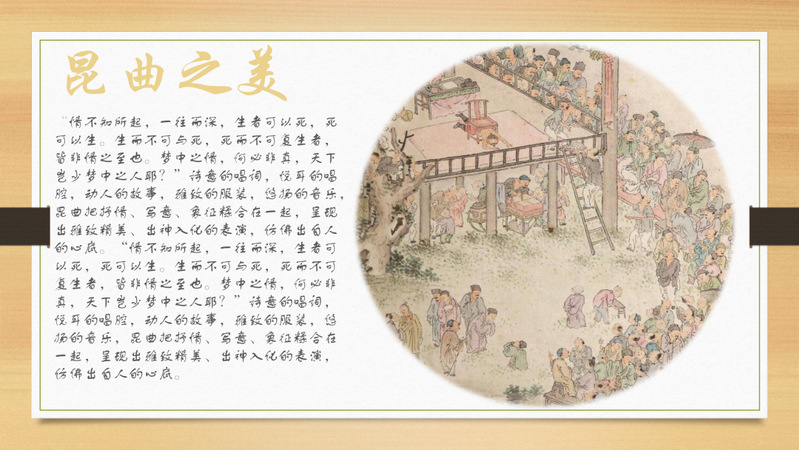 昆曲之美
“情不知所起，一往而深，生者可以死，死
可以生。生而不可与死，死而不可复生者，
皆非情之至也。梦中之情，何必非真，天下
岂少梦中之人耶？”诗意的唱词，悦耳的唱
腔，动人的故事，雅致的服装，悠扬的音乐，
昆曲把抒情、写意、象征糅合在一起，呈现
出雅致精美、出神入化的表演，仿佛出自人
的心底。“情不知所起，一往而深，生者可
以死，死可以生。生而不可与死，死而不可
复生者，皆非情之至也。梦中之情，何必非
真，天下岂少梦中之人耶？”诗意的唱词，
悦耳的唱腔，动人的故事，雅致的服装，悠
扬的音乐，昆曲把抒情、写意、象征糅合在
一起，呈现出雅致精美、出神入化的表演，
仿佛出自人的心底。